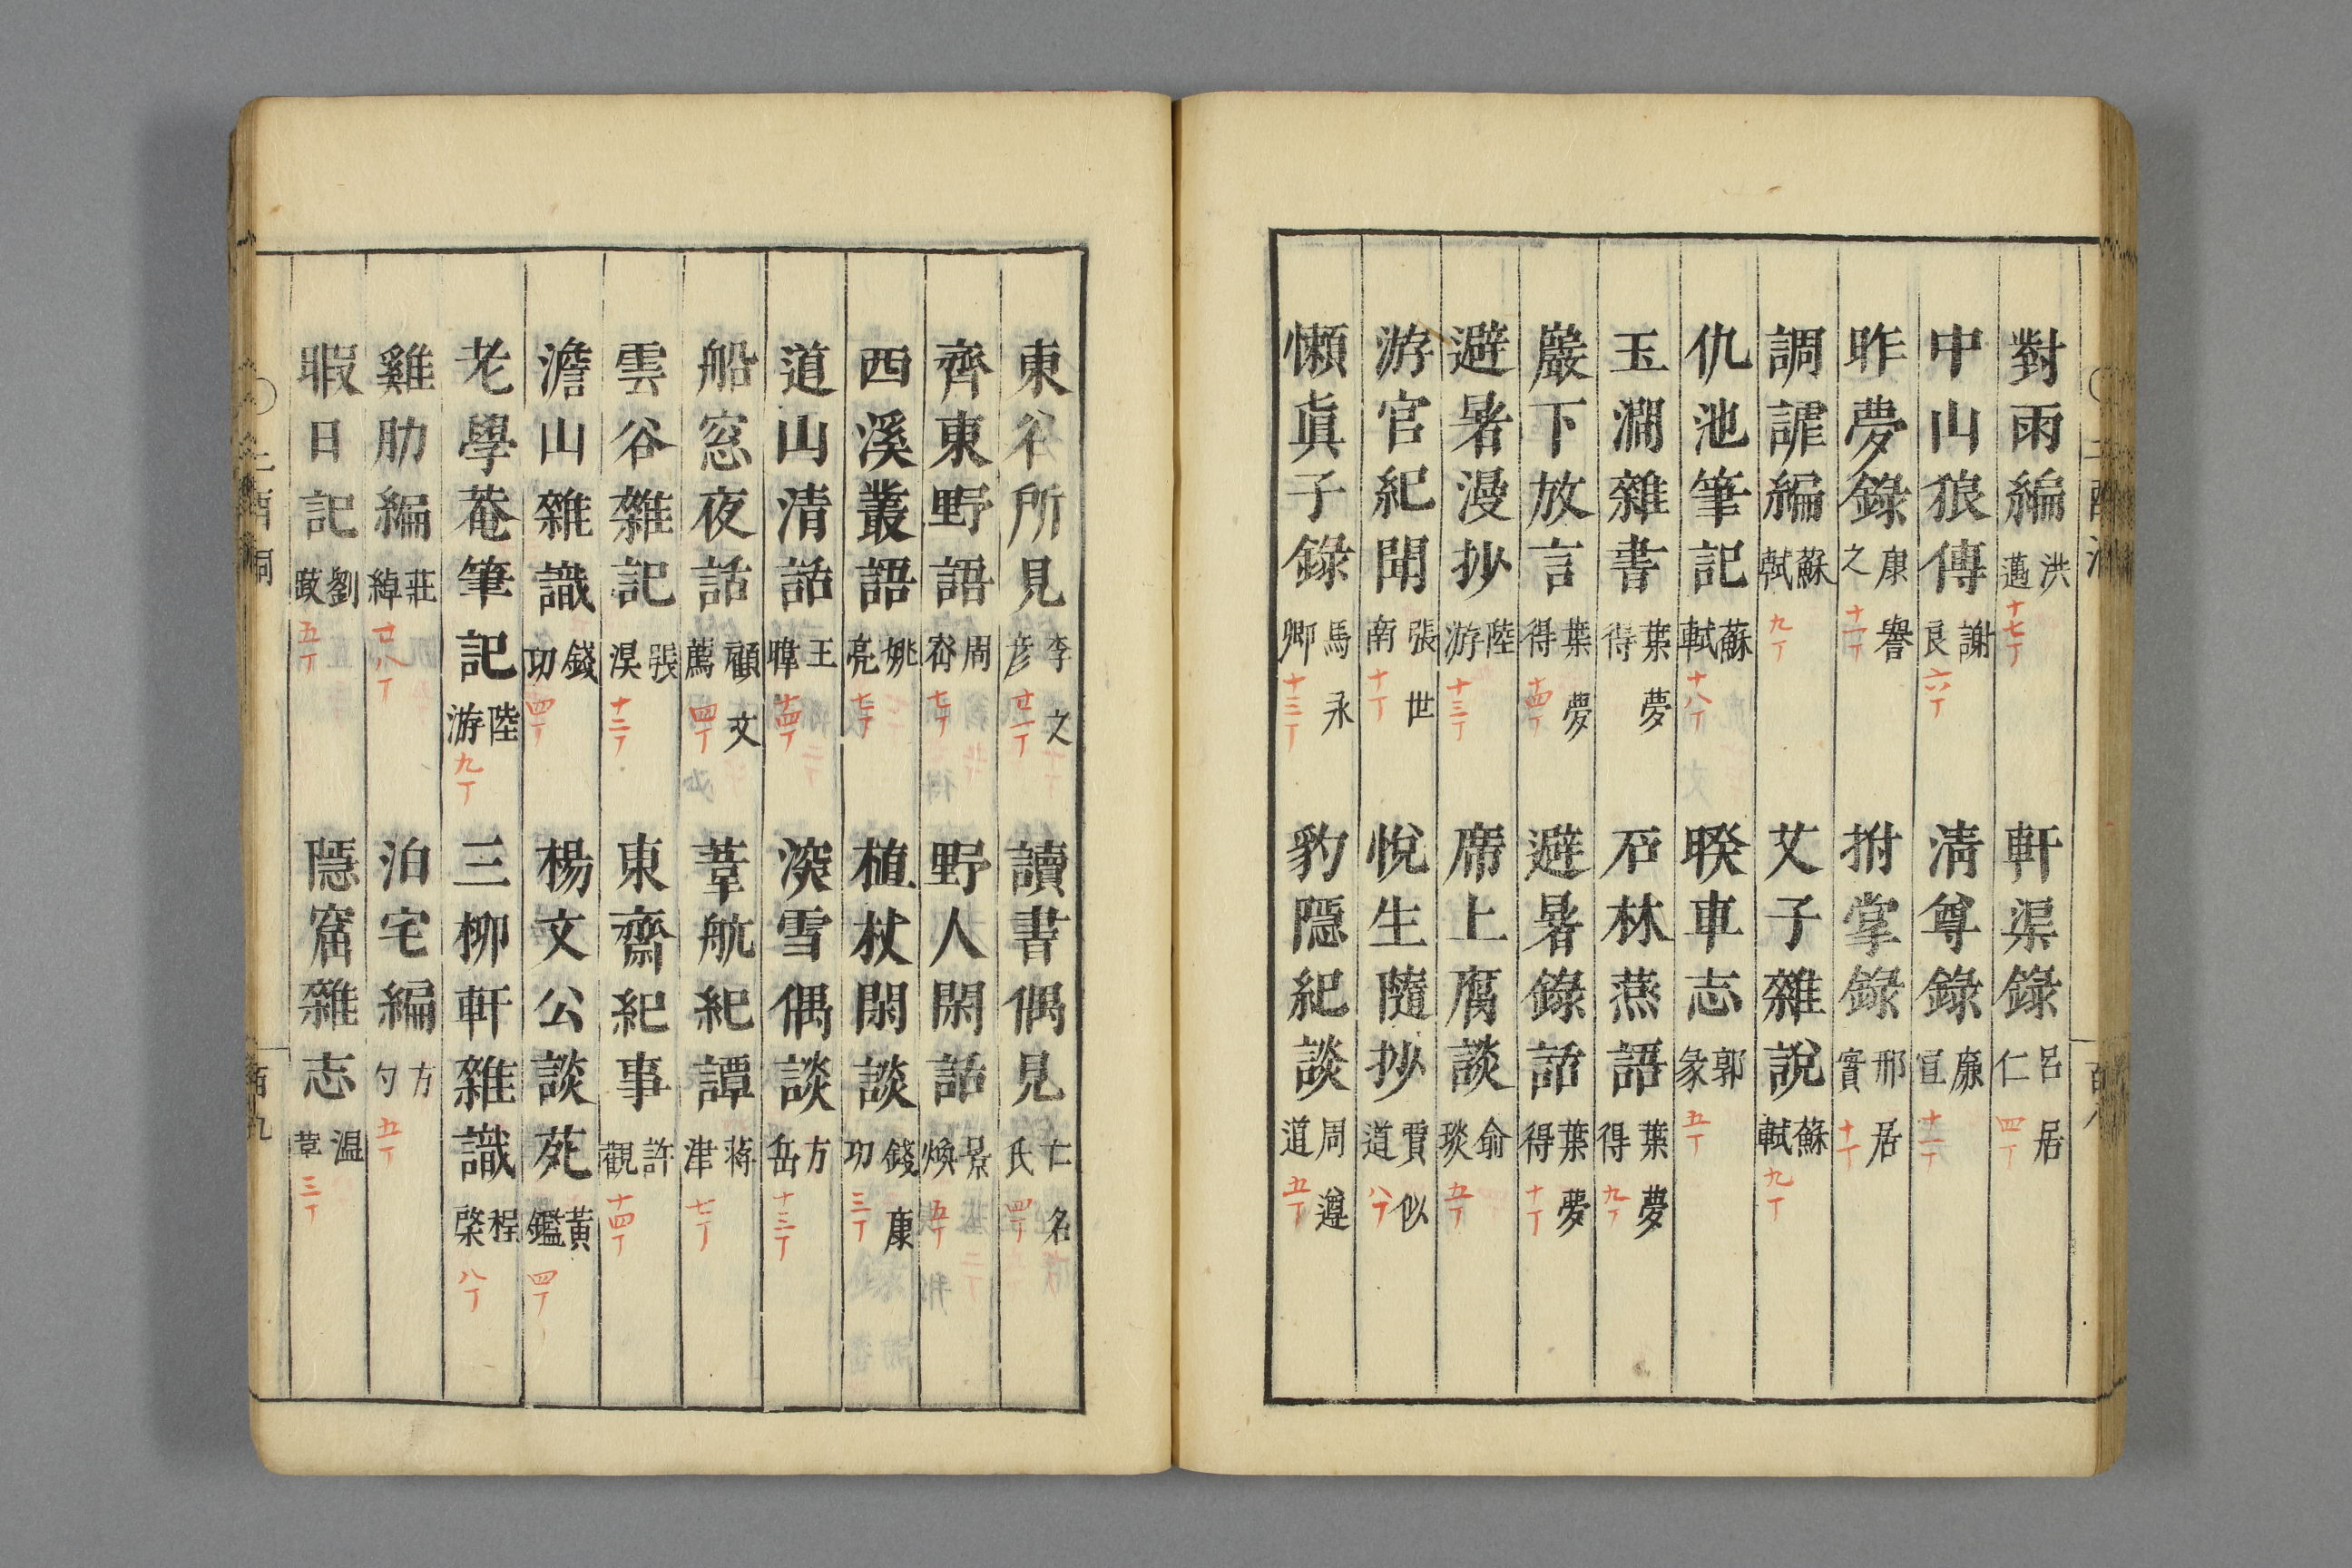 對雨編 洪邁 十七丁 軒渠錄 呂居仁 四丁
中山狼傳 謝良 六丁 清尊錄 廉宣 十一丁
昨夢錄 康譽之 十一丁 拊掌錄 邢居實 十一丁
調謔編 蘇軾 九丁 艾子雜說 蘇軾 九丁
仇池筆記 蘇軾 十八丁 睽車志 郭彖 五丁
玉澗雜書 葉夢得 石林燕語 葉夢得 九丁
巖下放言 葉夢得 十四丁 避暑錄話 葉夢得 十一丁
避暑漫抄 陸游 十三丁 席上腐談 俞琰 五丁
游官紀聞 張世南 十一丁 悅生隨抄 賈似道 八丁
懶真子錄 馬永卿 十三丁 豹隱紀談 周遵道 五丁
東谷所見 李文彥 廿一丁 讀書偶見 亡名氏 四丁
齊東野語 周密 七丁 野人閑話 景煥 五丁
西溪叢語 姚寬 七丁 植杖閑談 錢康功 三丁
道山清話 王暐 十四丁 深雪偶談 方岳 十三丁
船窓夜話 顧文薦 四丁 葦航紀譚 蔣津 七丁
雲谷雜記 張淏 十二丁 東齋紀事 許觀 十四丁
澹山雜識 錢功 四丁 楊文公談苑 黃鑑 四丁
老學菴筆記 陸游 九丁 三柳軒雜識 程棨 八丁
雞肋編 莊綽 廿八丁 泊宅編 方勺 五丁
暇日記 劉跂 五丁 隱窟雜志 溫革 三丁